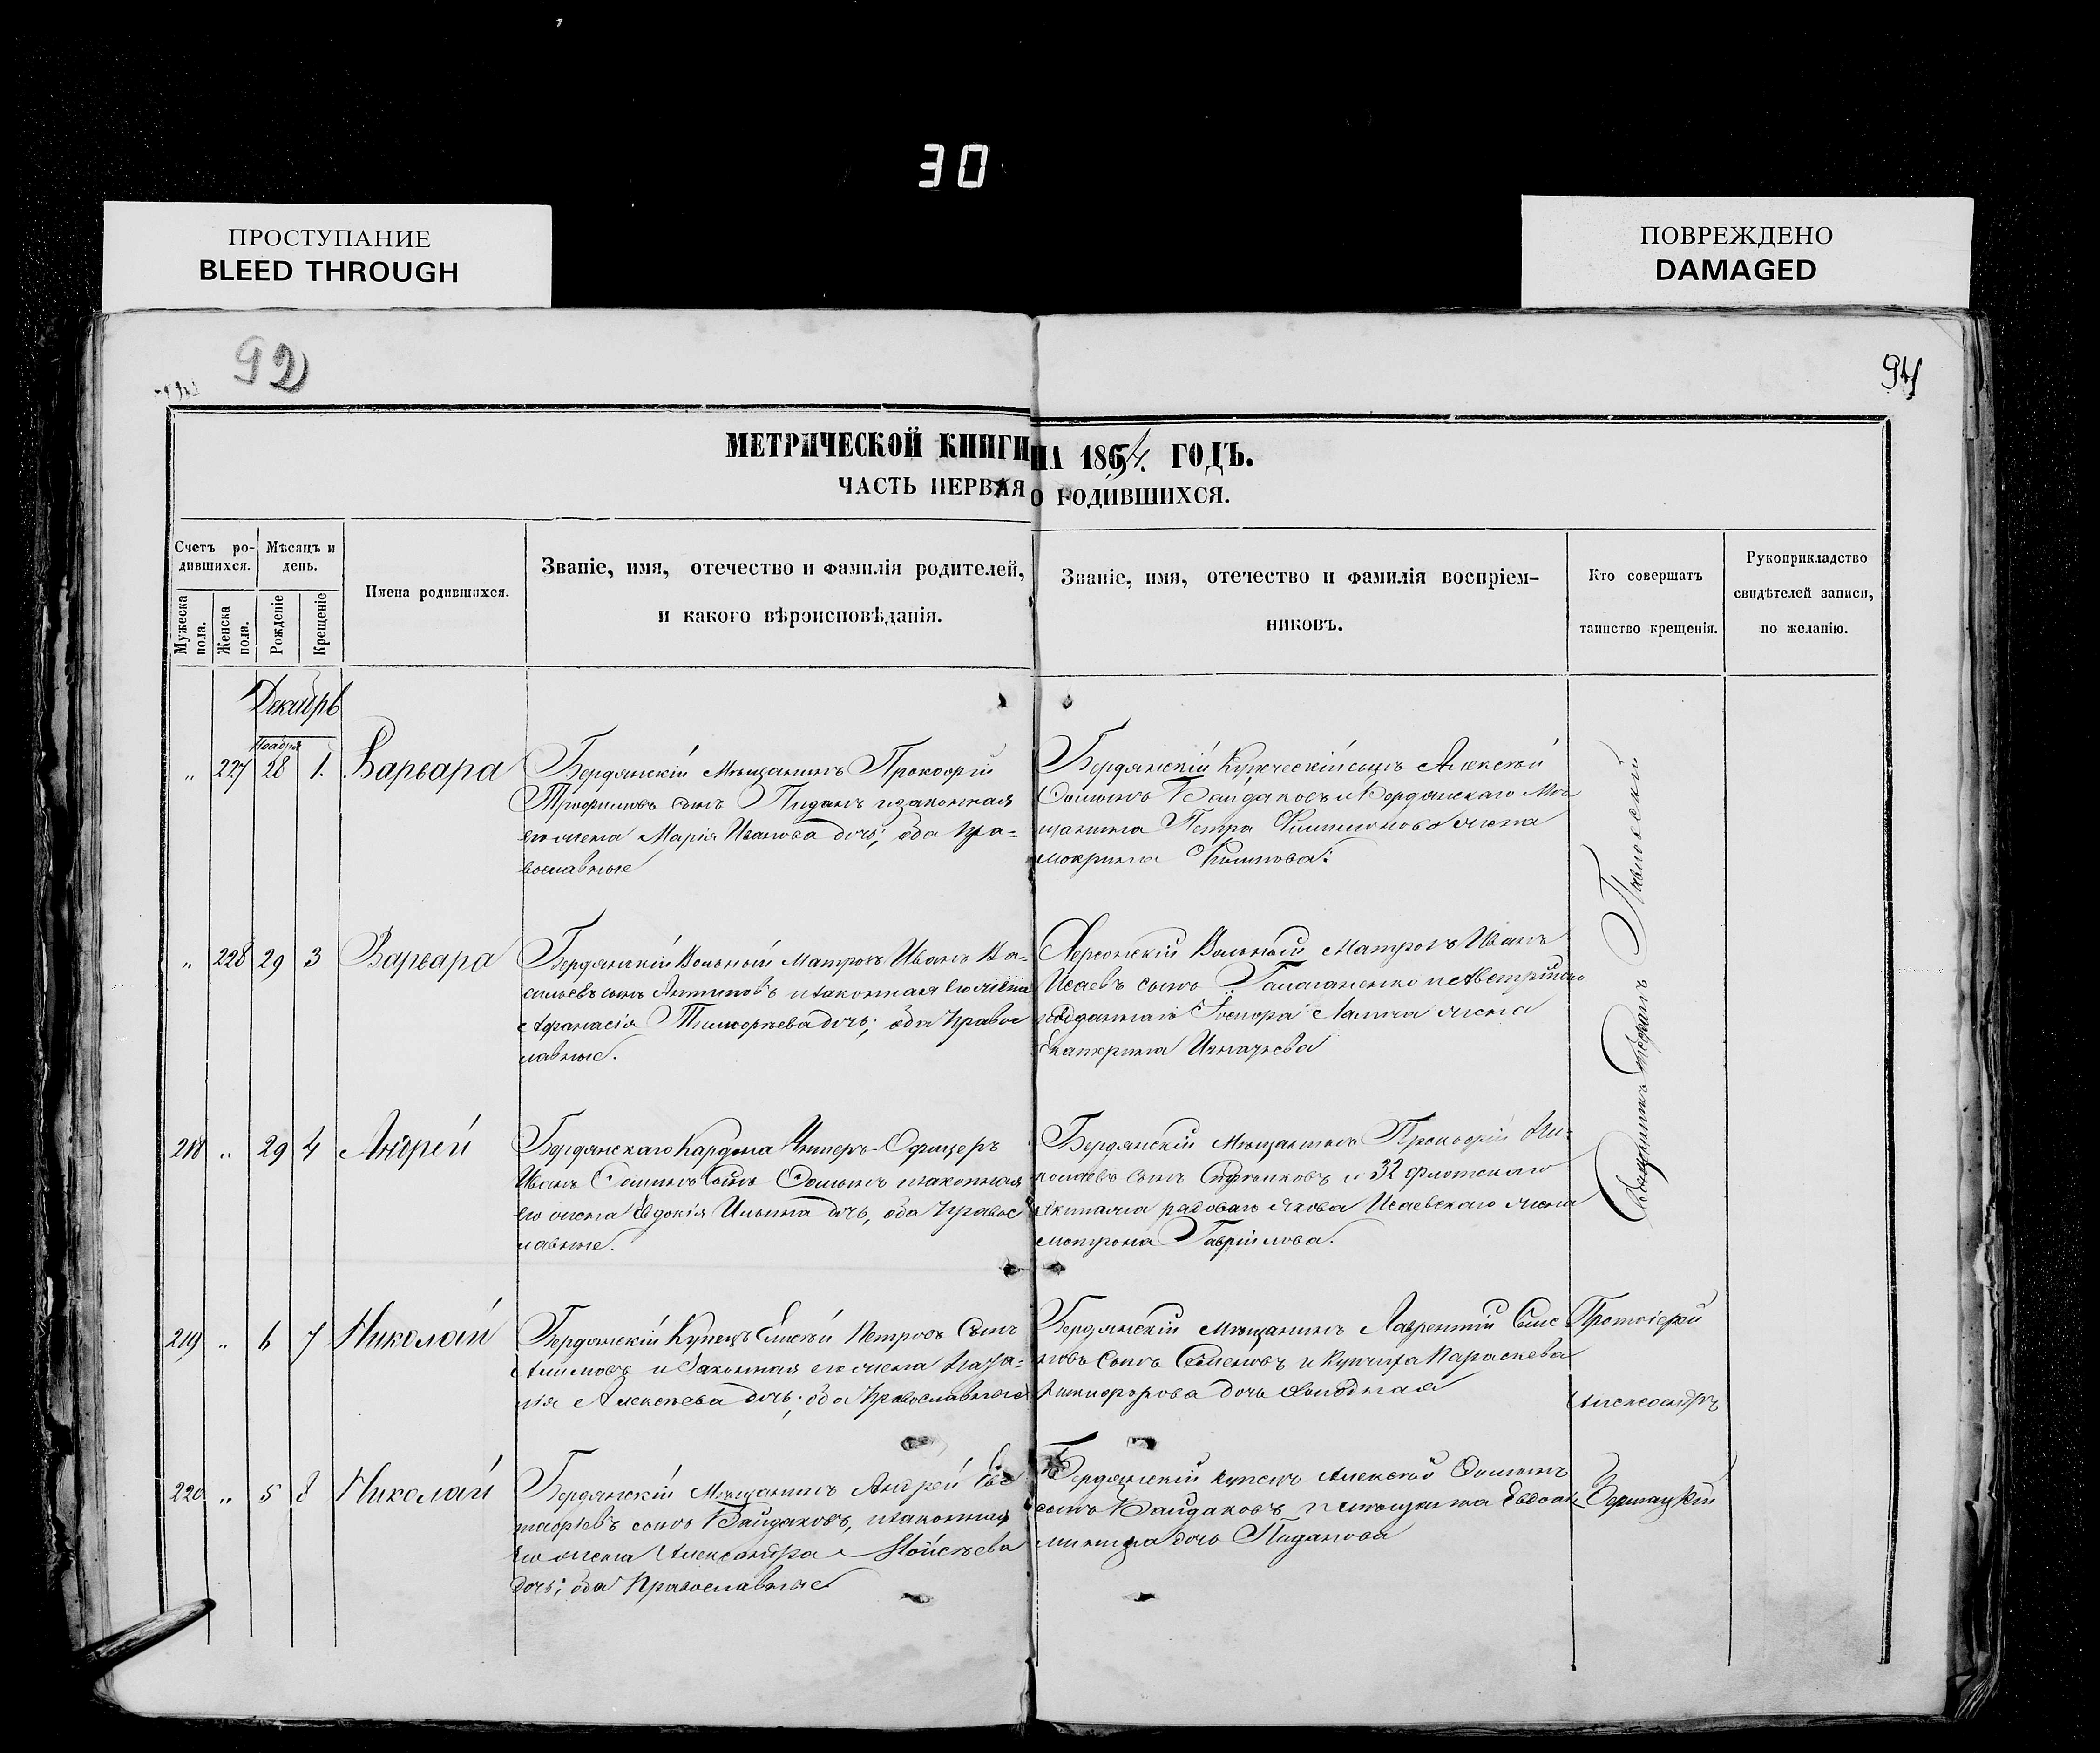 30
ПРОСТУПАНИЕ
BLEED THROUGH
ПОВРЕЖДЕНО
DAMAGED
92
94
МЕТРИЧЕСКОЙ КНИГИ НА 1854. ГОДЪ.
ЧАСТЬ ПЕРВАЯ О РОДИВШИХСЯ.
Счетъ ро-
дившихся.
Мѣсяцъ и
день.
Мужеска
пола.
Женска
пола.
Рожденіе
Крещеніе
Имена родившихся.
Званіе, имя, отечество и фамилія родителей,
и какого вѣроисповѣданія.
Званіе, имя, отечество и фамилія воспріем-
никовъ.
Кто совершатъ
таинство крещенія.
Рукоприкладство
свидѣтелей записи,
по желанію.
Декабрь
Ноября
„ 227 28 1. Варвара
Бердянскій Мѣщанинъ Прокофій
Трофимовъ сынъ Пиданъ и законная
его жена Марія Иванова дочь; оба пра-
вославные
Бердянскій Купеческій сынъ Алексѣй
Фоминъ Байдаковъ и Бердянскаго Мѣ
щанина Петра жена
мокрина
„ 228 29 3 Варвара
Бердянскій Вольный Матрозъ Иванъ Ва-
сильевъ сынъ Антиповъ и законная его жена
Афанасія Тимофѣева дочь; оба правос
лавные.
Херсонскій Вольный Матрозъ Иванъ
Исаевъ сынъ и Австрійскаго
подданнаго жена
Екатерина Игнатьева
218 „ 29 4 Андрей
Бердянскаго Кардона Унтеръ-Офицеръ
Иванъ Фоминъ Сынъ Фоминъ и законная
его жена Евдокія Ильина дочь, оба правос
лавные.
Бердянскій Мѣщанинъ Прокофій Ни-
колаевъ сынъ и 32 флотскаго
Экипажа рядоваго Якова Исаевскаго жена
мотрона Гавріилова.
Священникъ Стефанъ Павловскій
219 „ 6 7 Николай
Бердянскій Купецъ Елисѣй Петровъ Сынъ
Алимовъ и Законная его жена Ната-
лія Алексѣева дочь; оба Православные
Бердянскій Мѣщанинъ Лаврентій Симе
новъ Сынъ Семеновъ и Купчиха Параскева
Никифорова дочь
Протоіерей
Александръ
220 „ 5 8 Николай
Бердянскій Мѣщанинъ Андрей Евс
тафіевъ сынъ Байдаковъ, и законная
Его жена Александра Моисѣева
дочь; оба Православные
Бердянскій купецъ Алексѣй Фоминъ
сынъ Байдаковъ и мѣщанка Евдокі
дочь Пиданова